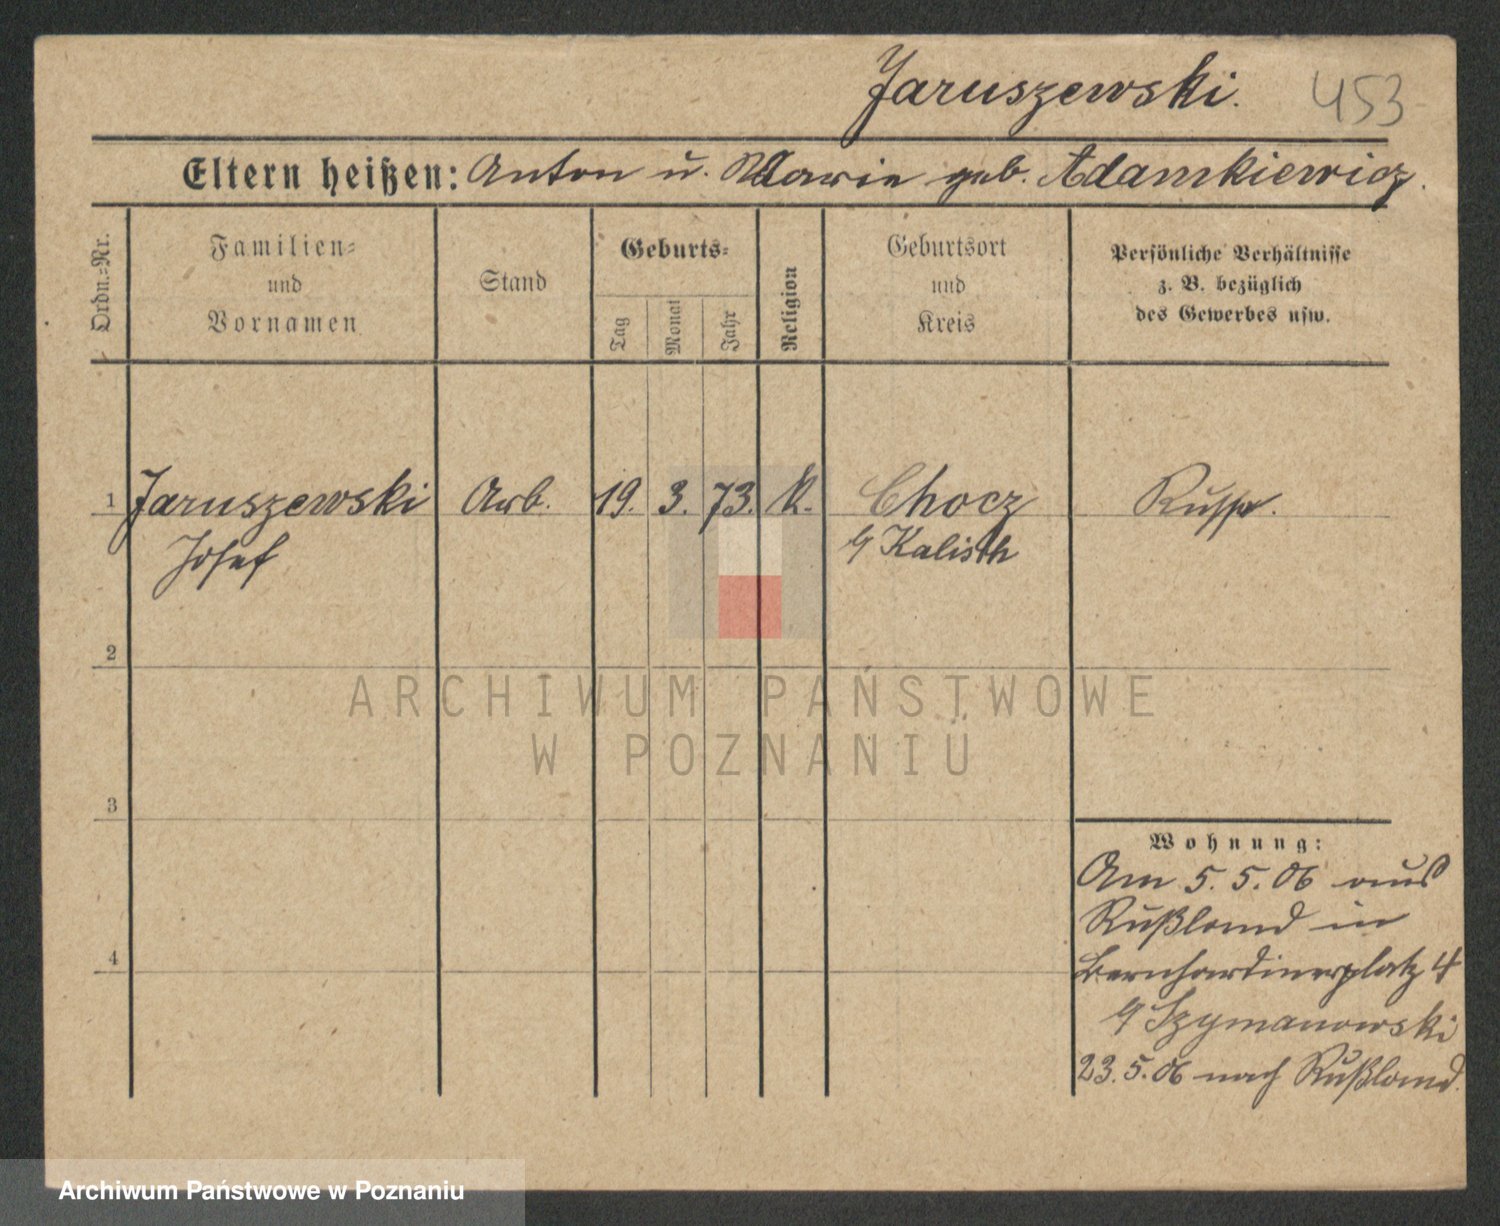 Jaruszewski. 453
Eltern heißen: Anton u. Marie geb. Adamkiewicz.
Ordn.=Nr.
Familien=
und
Vornamen
Stand
Geburts=
Tag
Monat
Jahr
Religion
Geburtsort
und
Kreis
Persönliche Verhältnisse
z. B. bezüglich
des Gewerbes usw.
1 Jaruszewski Arb. 19. 3. 73. K. Chocz
Josef Kalisch
2
ARCHIWUM PAŃSTWOWE
W POZNANIU
3
Wohnung:
Am 5. 5. 06 aus
Rußland in
4 Bernhardinerplatz 4
Szymanowski
23. 5. 06 nach Rußland.
Archiwum Państwowe w Poznaniu